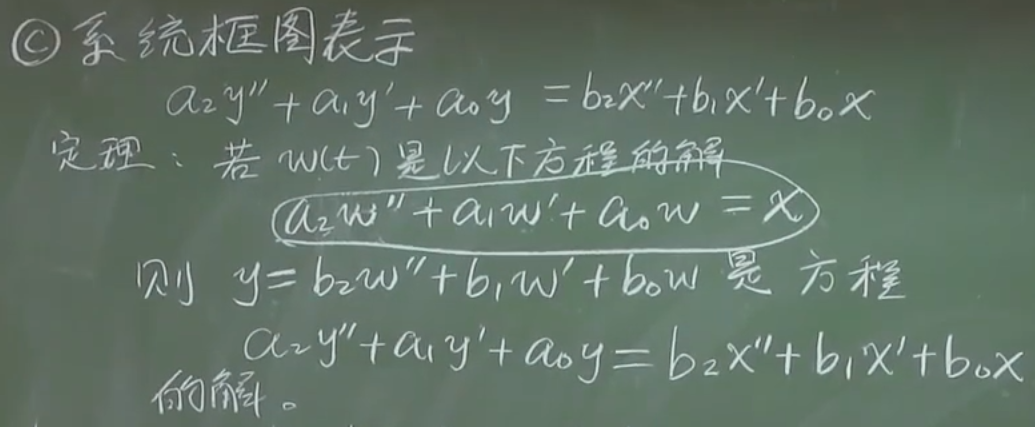 © 系统框图表示
a₂y″+a₁y′+a₀y =b₂x″+b₁x′+b₀x
定理：若 w(t) 是以下方程的解
a₂w″+a₁w′+a₀w = x
则 y=b₂w″+b₁w′+b₀w 是 方程
a₂y″+a₁y′+a₀y=b₂x″+b₁x′+b₀x
的解。